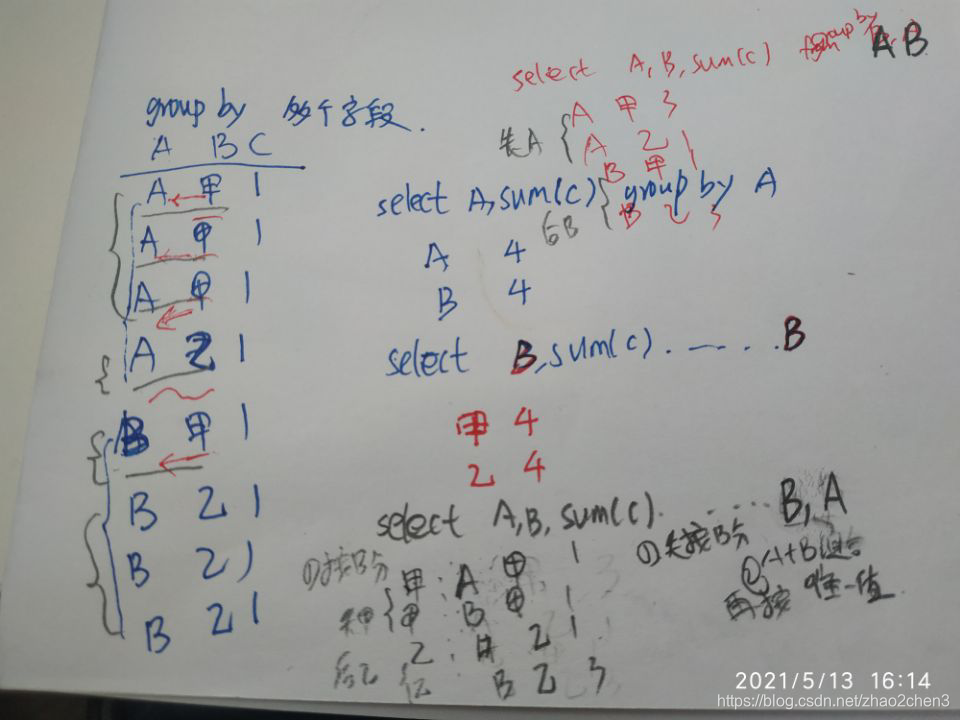 select A, B, sum(c) group by A B
group by 多个字段.
A B C
A 甲 1
A 甲 1
A 甲 1
A 乙 1
B 甲 1
B 乙 1
B 乙 1
B 乙 1
A 甲 3
先A
A 乙 1
B 甲 1
select A, sum(c) group by A
后B
B 乙 3
A 4
B 4
select B, sum(c) . — . . . B
甲 4
乙 4
select A, B, sum(c). . . . . B, A
①按B分
甲: A 甲 1
先甲
甲: B 甲 1
乙:
乙 1
后乙
B 乙 3
①先按B分
②A+B组合
再按 唯一值
2021/5/13 16:14
https://blog.csdn.net/zhao2chen3